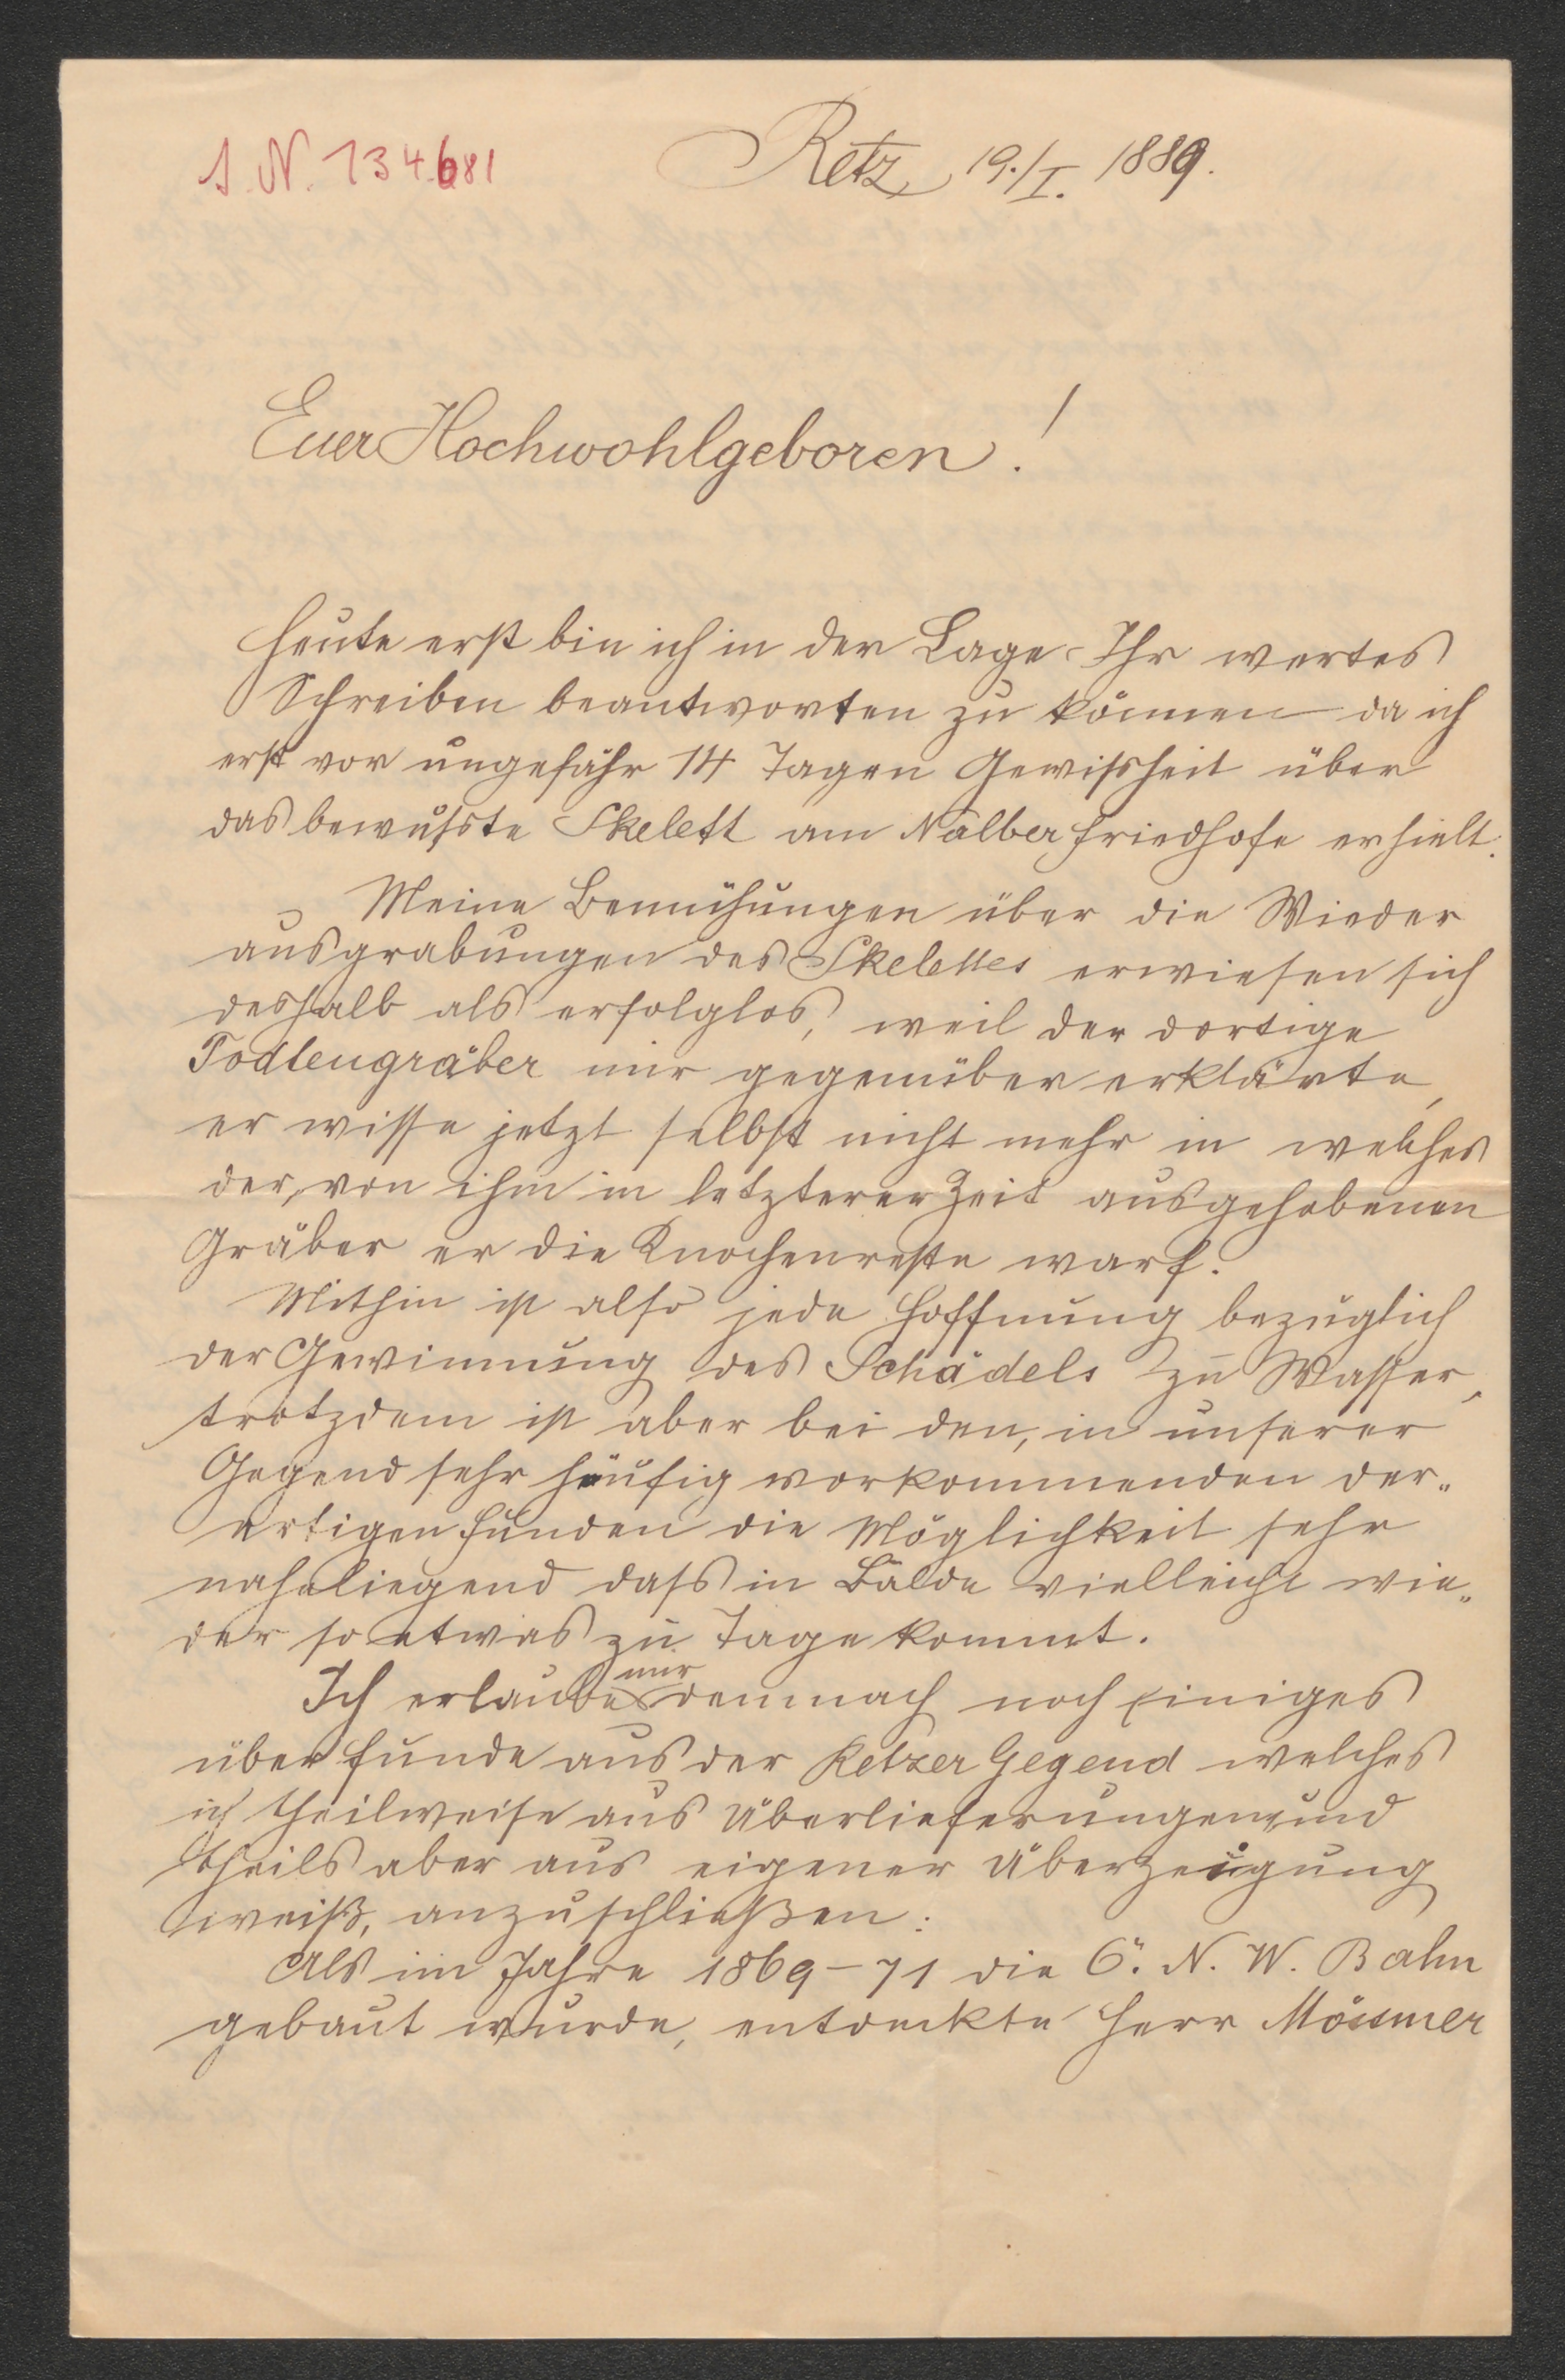 I. N. 134.681
Retz 19./I. 1889.
Euer Hochwohlgeboren!
Heute erst bin ich in der Lage Ihr wertes
Schreiben beantworten zu können da ich
erst vor ungefähr 14 Tagen Gewißheit über
das bewußte Skelett am Nalber Friedhofe erhielt.
Meine Bemühungen über die Wieder
ausgrabungen des Skelettes erwiesen sich
deshalb als erfolglos, weil der dortige
Todtengräber mir gegenüber erklärte,
er wisse jetzt selbst nicht mehr in welches
der, von ihm in letzterer Zeit ausgehobenen
Gräber er die Knochenreste warf.
Mithin ist also jede Hoffnung bezüglich
der Gewinnung des Schädels zu Wasser,
trotzdem ist aber bei den, in unserer
Gegend sehr häufig vorkommenden der„
artigen Funden die Möglichkeit sehr
naheliegend daß in Bälde vielleicht wie„
der so etwas zu Tage kommt.
Ich erlaube mir demnach noch Einiges
über Funde aus der Retzer Gegend welches
ich theilweise aus Überlieferungen, und
theils aber aus eigener Überzeugung
weiß, anzuschließen:
Als im Jahre 1869–71 die Ö. N. W. Bahn
gebaut wurde, entdeckte Herr Mössmer